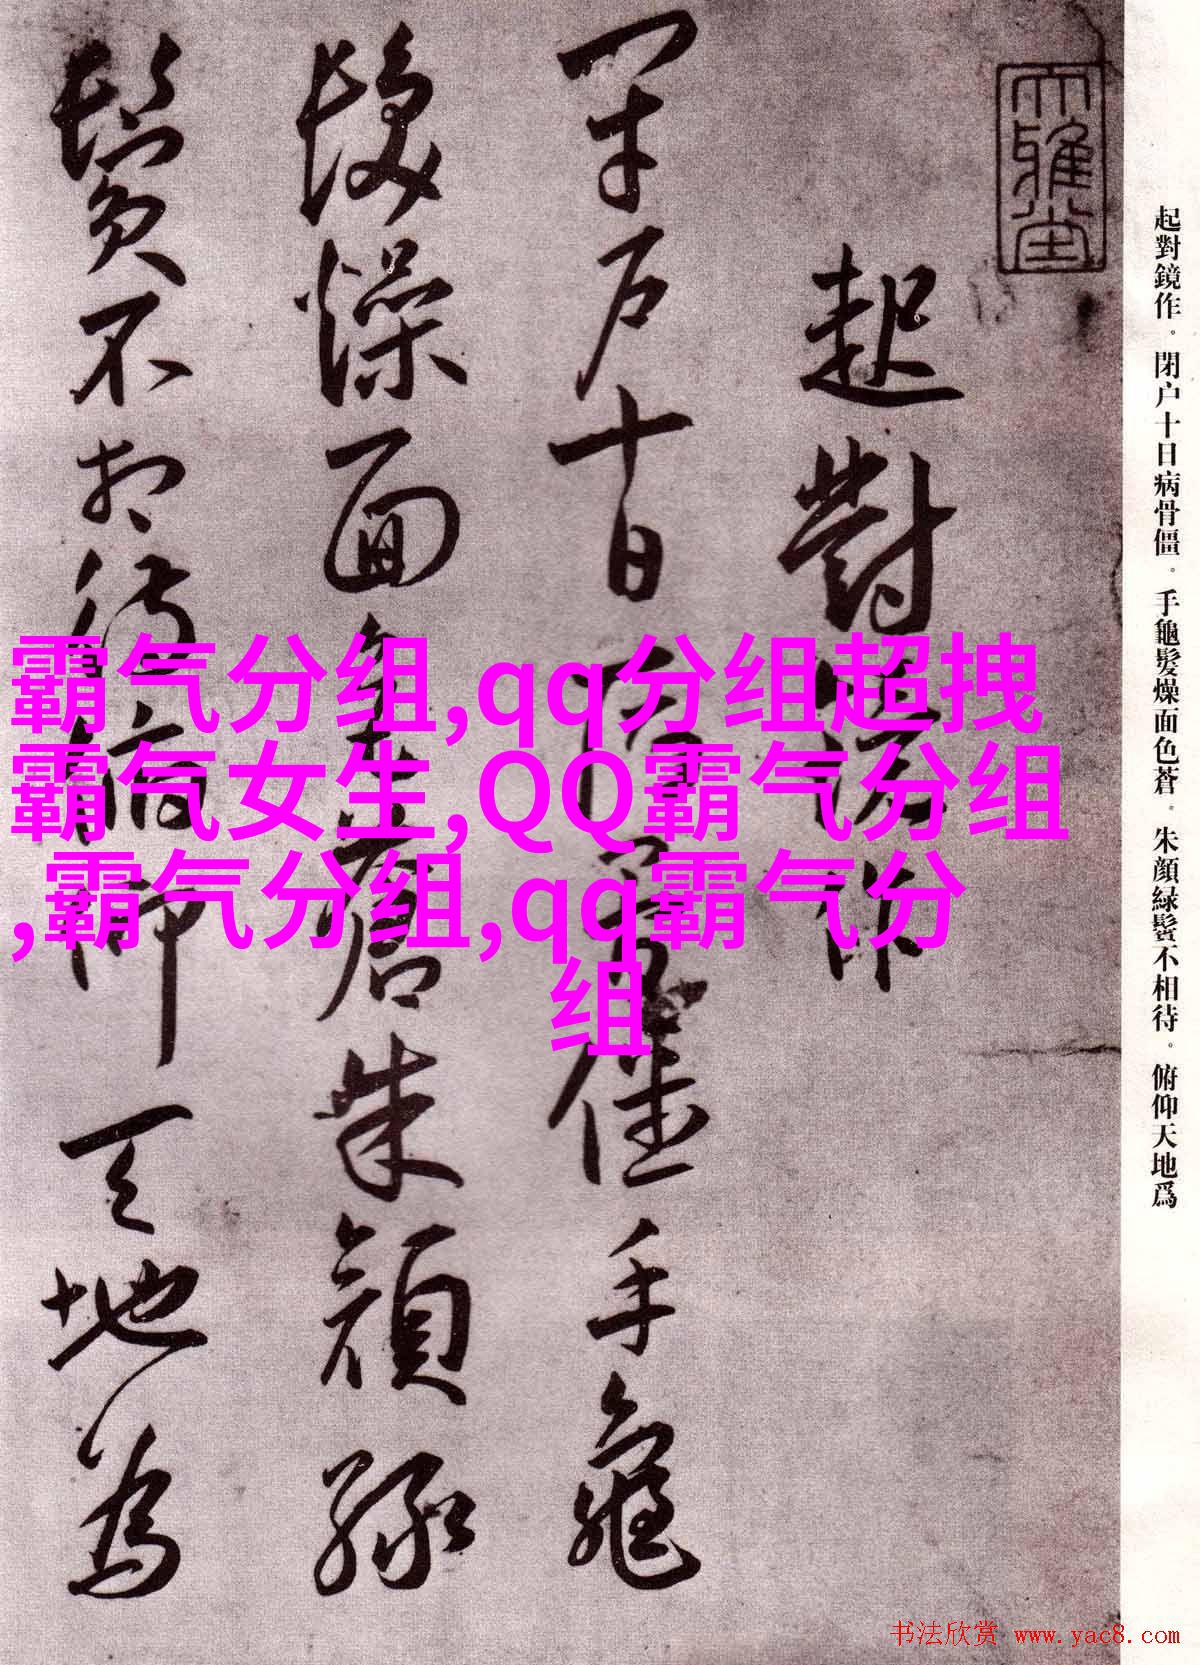 起對鏡作。閉户十日病骨僵。手龜髮燥面色蒼。朱顔緑鬢不相待。俯仰天地爲
大雅堂
起對鏡作
閉户十日病骨僵手龜
髮燥面色蒼朱顔緑
鬢不相待俯仰天地為
霸气分组,qq分组超拽
霸气女生,QQ霸气分组
,霸气分组,qq霸气分
组
书法欣赏 www.yac8.com